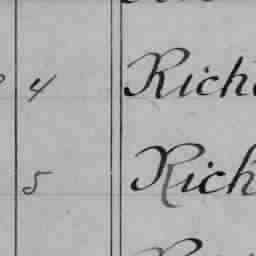 4 Rich
5 Rich